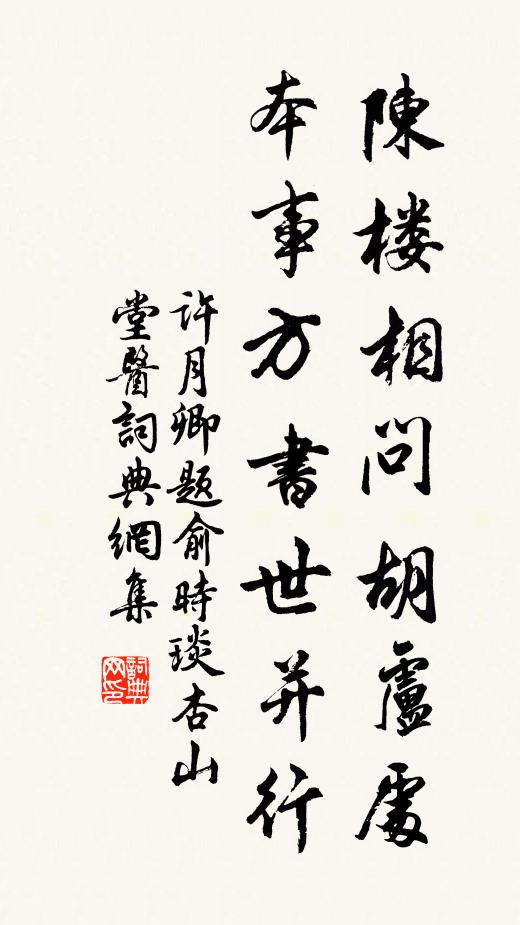 陳楼相問胡盧處
本事方書世并行
許月卿題俞時琰杏山
堂醫詞典網集
詞典网印